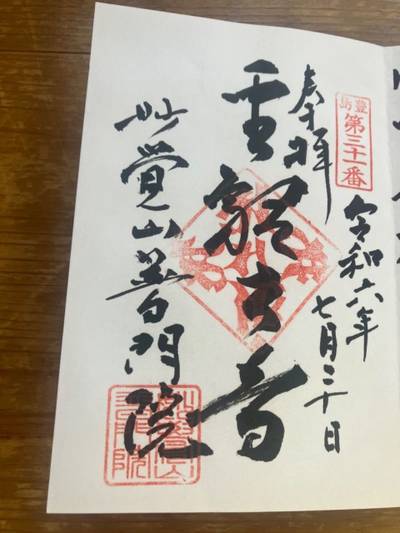 豊島
第三十一番
奉拝
令和六年
七月二十日
聖観世音
妙覚山普門院